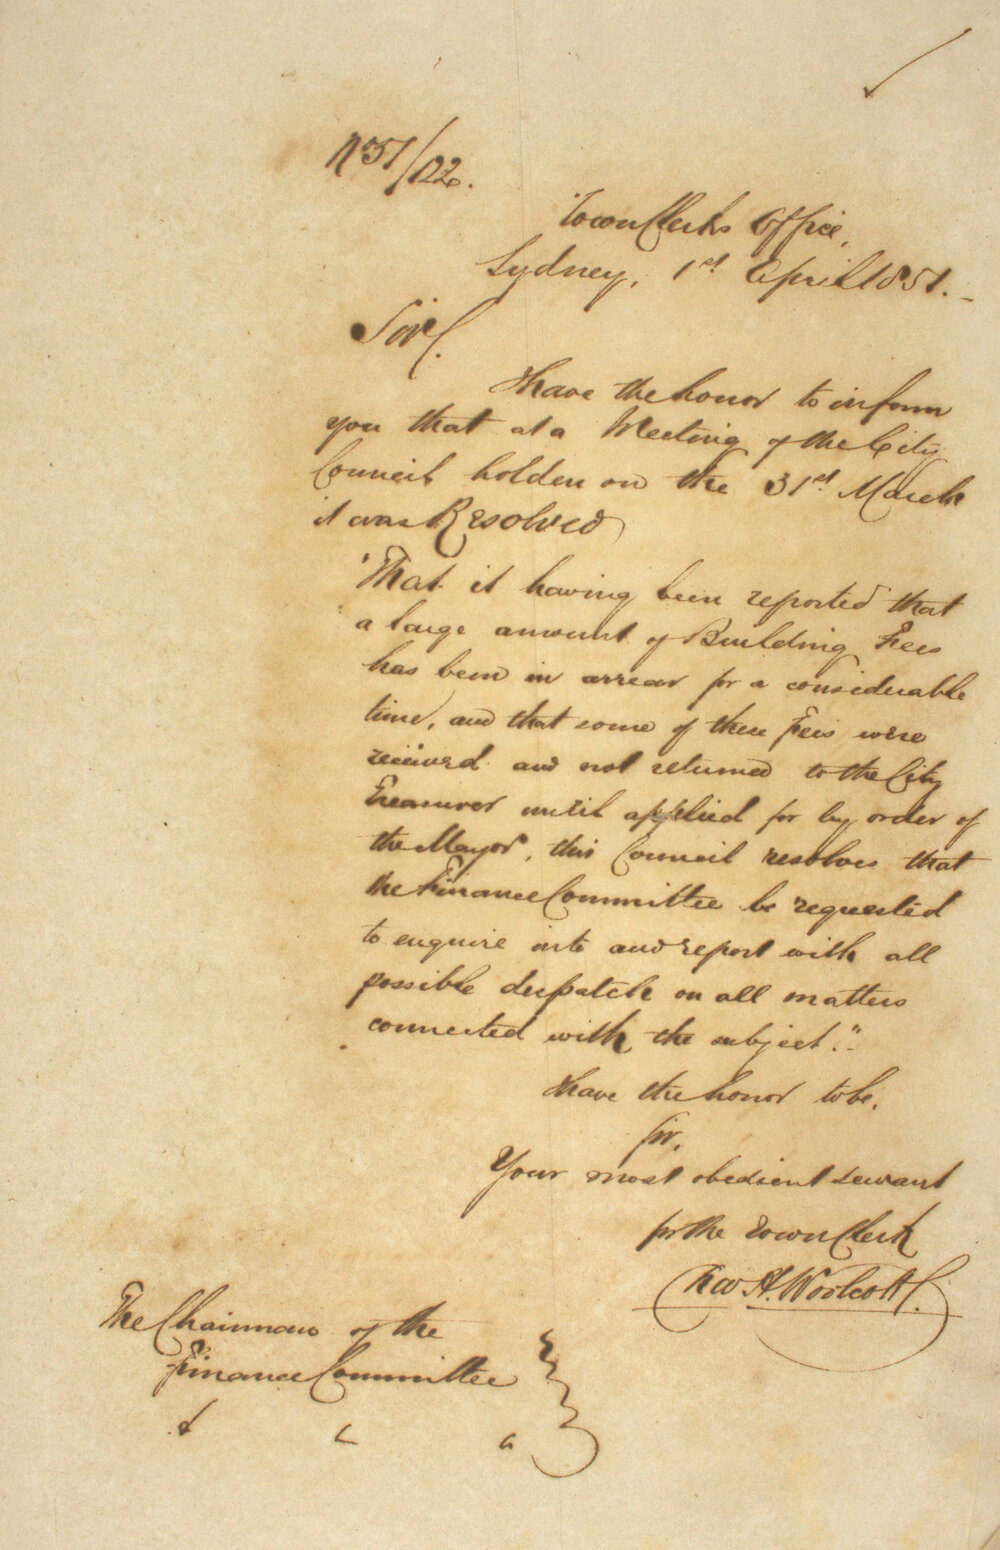 No 51/122.
Town Clerks Office,
Sydney, 1st April 1851.
Sir,
I have the honor to inform
you that at a Meeting of the City
Council holden on the 31st March
it was Resolved
"That it having been reported that
a large amount of Building Fees
has been in arrear for a considerable
time, and that some of these Fees were
received and not returned to the City
Treasurer until applied for by order of
the Mayor, this Council resolves that
the Finance Committee be requested
to enquire into and report with all
possible despatch on all matters
connected with the subject."
I have the honor to be,
Sir,
Your most obedient servant
for the Town Clerk
Chas H. Woolcott
The Chairman of the
Finance Committee